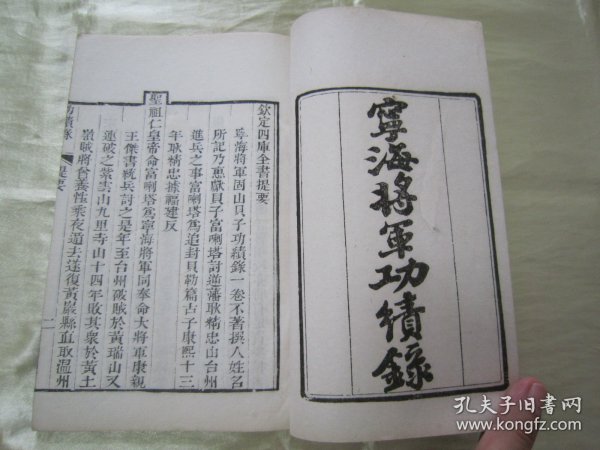 寧海將軍功績錄
欽定四庫全書提要
寧海將軍固山貝子功績錄一卷不著撰人姓名
所記乃惠獻貝子富喇塔討逆藩耿精忠山台州
進兵之事富喇塔爲追封貝勒篇古子康熙十三
年耿精忠據福建反
聖祖仁皇帝命富喇塔爲寧海將軍同奉命大將軍康親
王傑書統兵討之是年至台州破賊於黃瑞山又
連破之紫雲山九里寺山十四年敗其衆於黃土
嶺賊將曾養性乘夜遁去遂復黃巖縣直取溫州
功績錄
提要
二
孔夫子旧书网
www.kongfz.com